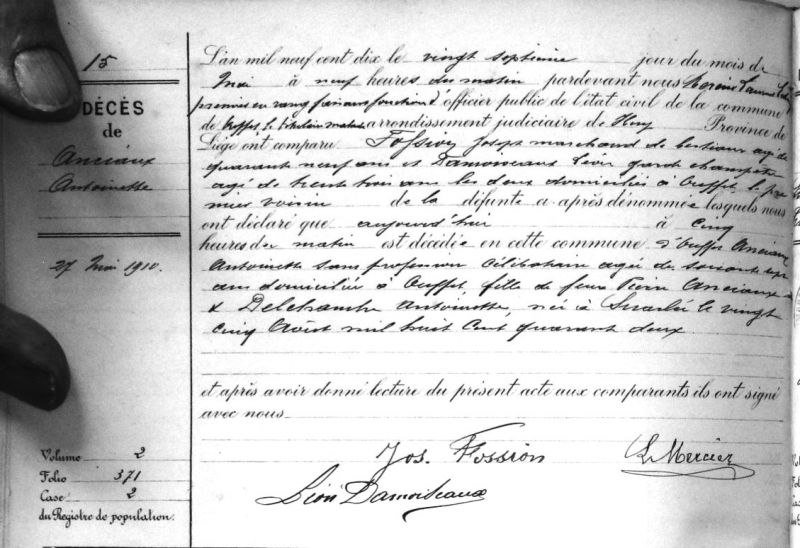 15
DÉCÈS
de
Anciaux
Antoinette
27 Mai 1910.
Volume 2
Folio 371
Case 2
du Registre de population.
L'an mil neuf cent dix le vingt septième jour du mois de
Mai à neuf heures du matin pardevant nous Mercier
premier en rang faisant fonction d'officier public de l'état civil de la commune
de Ouffet arrondissement judiciaire de Huy Province de
Liége ont comparu Fossion Joseph marchand de bestiaux agé de
quarante neuf ans et Damoiseaux Léon garde champêtre
agé de trente trois ans les deux domiciliés à Ouffet le pre
mier voisin de la défunte ci-après dénommée lesquels nous
ont déclaré que aujourd'hui à cinq
heures du matin est décédée en cette commune d'Ouffet Anciaux
Antoinette sans profession célibataire agée de soixante sept
ans domiciliée à Ouffet, fille de feux Pierre Anciaux
& Delchambre Antoinette, née à le vingt
cinq Août mil huit cent quarante deux
et après avoir donné lecture du présent acte aux comparants ils ont signé
avec nous
Jos. Fossion
L. Mercier
Léon Damoiseaux